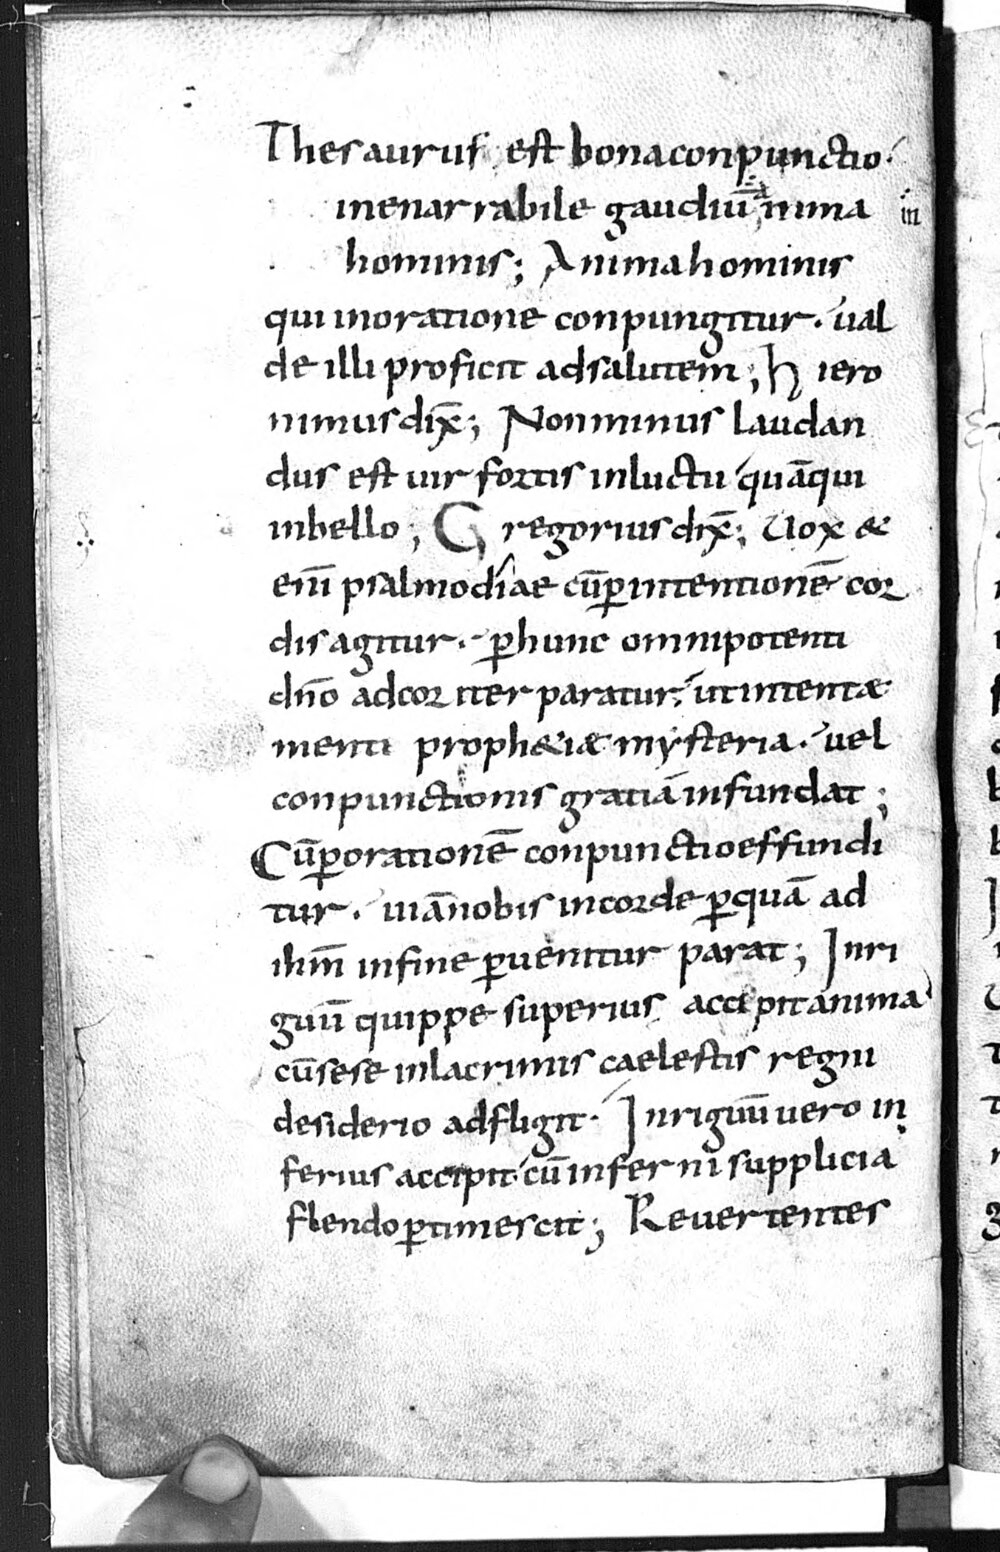 Thesaurus est bona conpunctio·
inenarrabile gaudiū anima in
hominis; Anima hominis
qui in oratione conpungitur· ual
de illi proficit ad salutem; hiero
nimus dix̄; Non minus laudan
dus est uir fortis in luctu quā qui
in bello; Gregorius dix̄; Uox &
eni̅ psalmodiae cū ꝑ intentionē cor
dis agitur· ꝑ hunc omnipotenti
dn̄o ad cor iter paratur; ut intentae
menti proph&iae mysteria· uel
conpunctionis gratiā infundat;
Cū ꝑ orationē conpunctio effundi
tur· uiā nobis in corde ꝑ quā ad
ihm̄ in fine ꝑuenitur parat; Inri
guū quippe superius accipit anima
cū sese in lacrimis caelestis regni
desiderio adfligit· Inriguū uero in
ferius accipit· cū inferni supplicia
flendo ꝑtimescit; Reuertentes